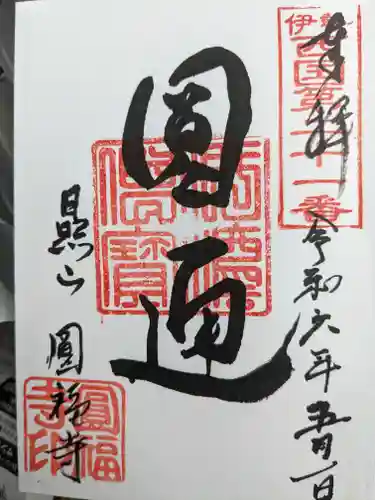 奉拝
伊勢西国第二十一番
令和六年五月一日
圓通
佛法僧寶
日照山
圓福寺
圓福寺印